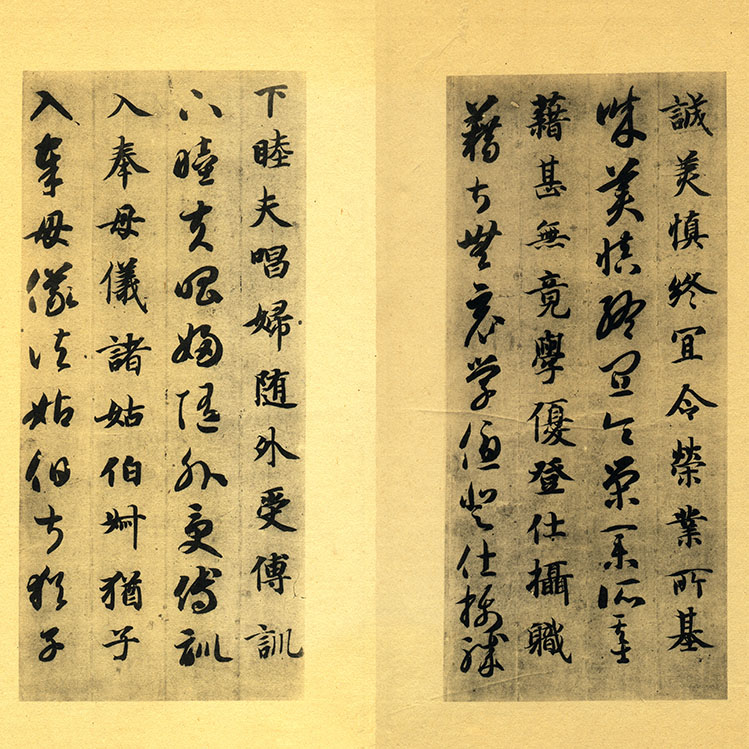 誠美慎終宜令榮業所基
誠美慎終宜令榮業所基
藉甚無竟學優登仕攝職
藉甚無竟學優登仕攝職
下睦夫唱婦随外受傅訓
下睦夫唱婦随外受傅訓
入奉母儀諸姑伯叔猶子
入奉母儀諸姑伯叔猶子